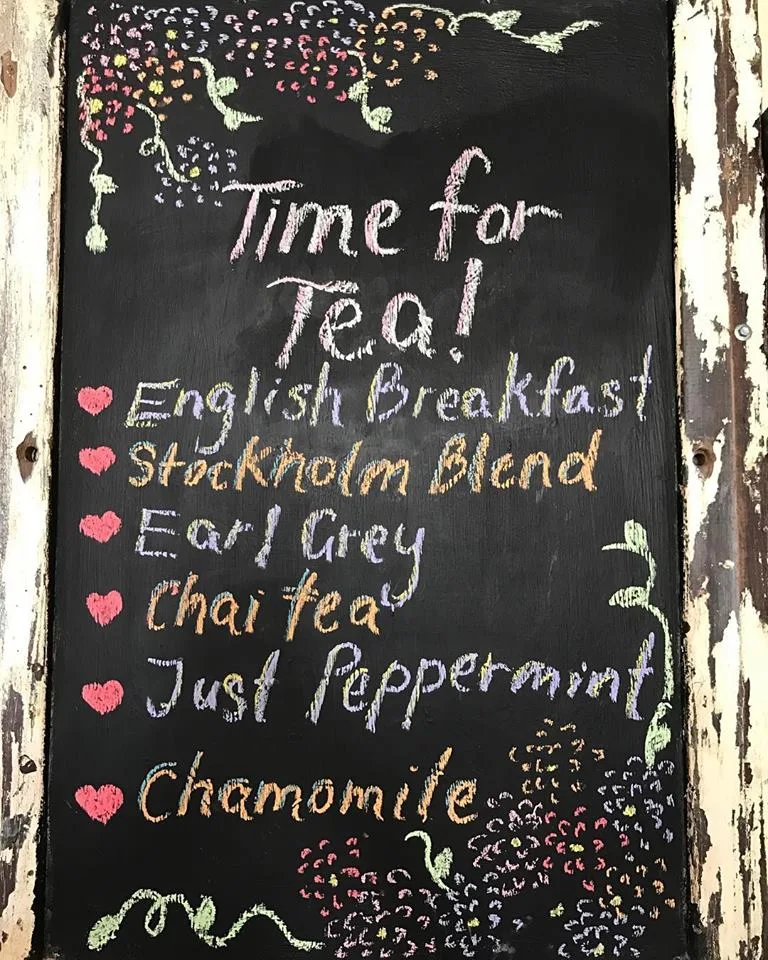 Time for
Tea!
English Breakfast
Stockholm Blend
Earl Grey
Chai tea
Just Peppermint
Chamomile